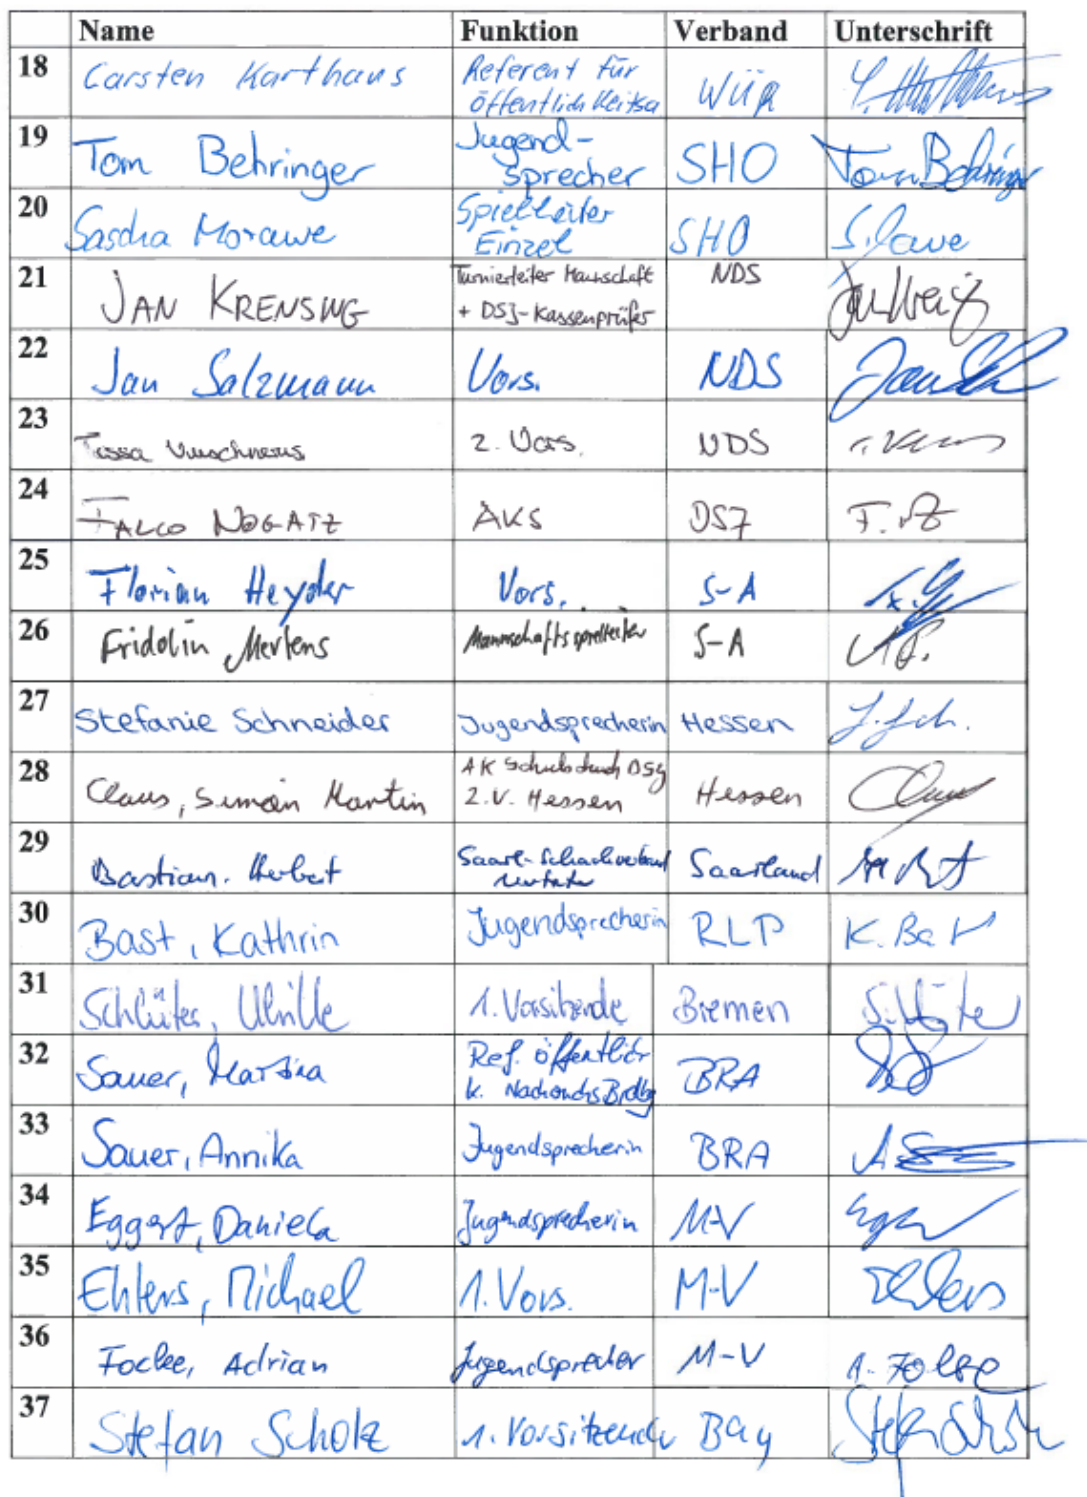 Name Funktion Verband Unterschrift
18 Carsten Karthaus Referent für Öffentlichkeitsa WÜR
19 Tom Behringer Jugend-sprecher SHO Tom Behringer
20 Sascha Morawe Spielleiter Einzel SHO
21 JAN KRENSING Turnierleiter Mannschaft + DSJ-Kassenprüfer NDS
22 Jan Salzmann Vors. NDS
23 2. Vors. NDS
24 FALCO NOGATZ AKS DSJ
25 Florian Heyder Vors. S-A
26 Fridolin Mertens Mannschaftsspielleiter S-A
27 Stefanie Schneider Jugendsprecherin Hessen
28 Claus, Simon Martin AK Schulschach DSJ 2.V. Hessen Hessen
29 Bastian. Herbert Saarl-Schachverband Saarland
30 Bast, Kathrin Jugendsprecherin RLP K. Bast
31 Schlüter, Ulrike 1. Vorsitzende Bremen
32 Sauer, Martina Ref. Öffentlich k. BRA
33 Sauer, Annika Jugendsprecherin BRA
34 Eggert, Daniela Jugendsprecherin M-V
35 Ehlers, Michael 1. Vors. M-V Ehlers
36 Focke, Adrian Jugendsprecher M-V
37 Stefan Scholz 1. Vorsitzender Bay